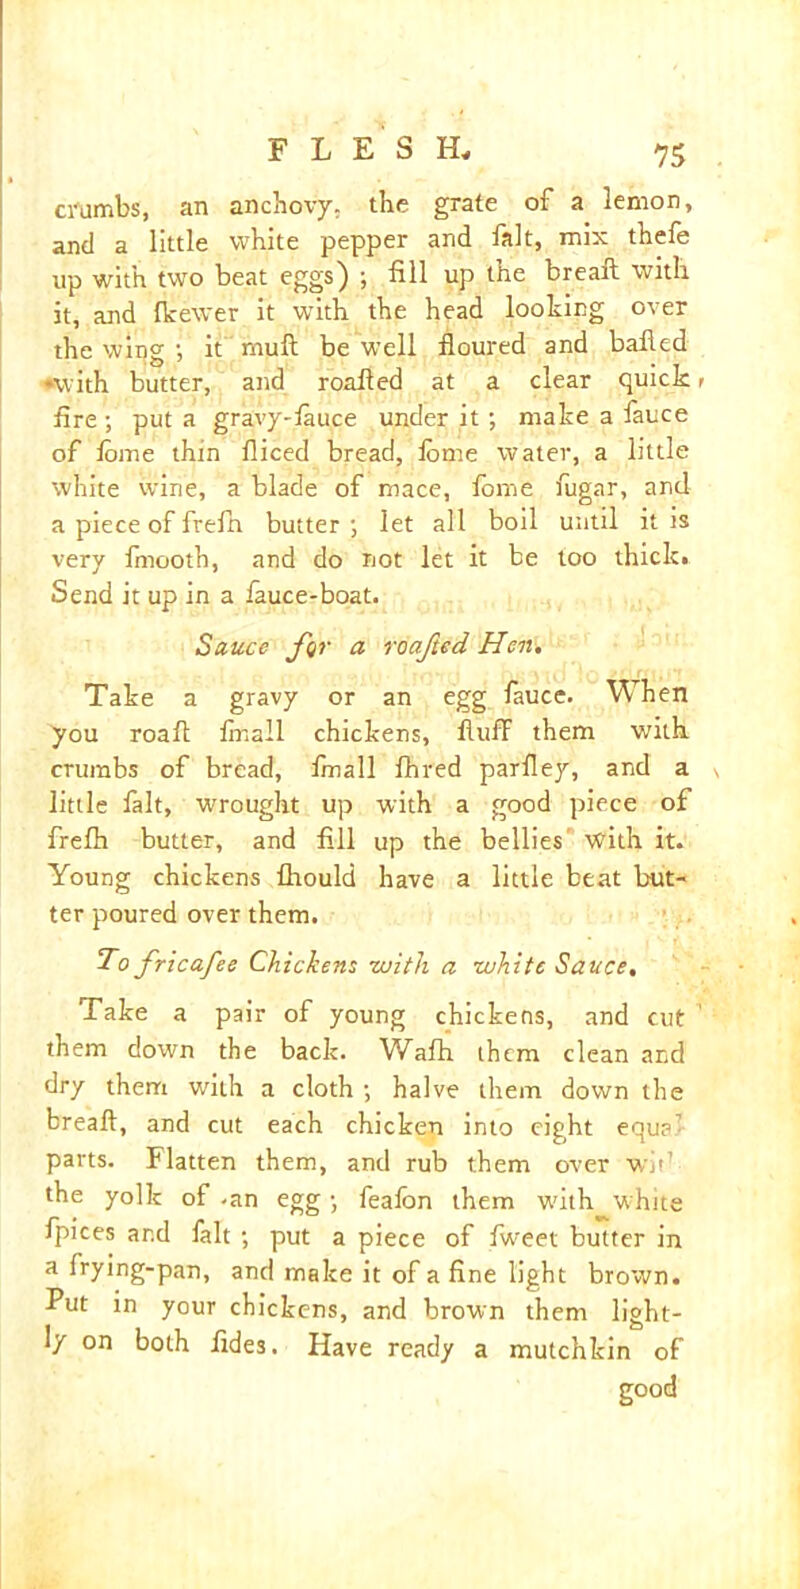 F L E S H. 75
crumbs, an anchovy, the grate of a lemon,
and a little white pepper and ſalt, mix theſe
up with two beat eggs) ; fill up the breaſt with
it, and ſkewer it with the head looking over
the wing ; it muſt be well floured and baſted
with butter, and roaſted at a clear quick
fire ; put a gravy-ſauce under it ; make a ſauce
of ſome thin ſliced bread, ſome water, a little
white wine, a blade of mace, ſome ſugar, and
a piece of freſh butter ; let all boil until it is
very ſmooth, and do not let it be too thick.
Send it up in a ſauce-boat.
Sauce for a roaſted Hen.
Take a gravy or an egg ſauce. When
you roaſt ſmall chickens, ſtuff them with
crumbs of bread, ſmall ſhred parſley, and a
little ſalt, wrought up with a good piece of
freſh butter, and fill up the bellies with it.
Young chickens ſhould have a little beat but-
ter poured over them.
To fricaſee Chickens with a white Sauce.
Take a pair of young chickens, and cut
them down the back. Waſh them clean and
dry them with a cloth ; halve them down the
breaſt, and cut each chicken into eight equal
parts. Flatten them, and rub them over wit
the yolk of an egg ; ſeaſon them with white
ſpices and ſalt ; put a piece of ſweet butter in
a frying-pan, and make it of a fine light brown.
Put in your chickens, and brown them light-
ly on both ſides. Have ready a mutchkin of
good